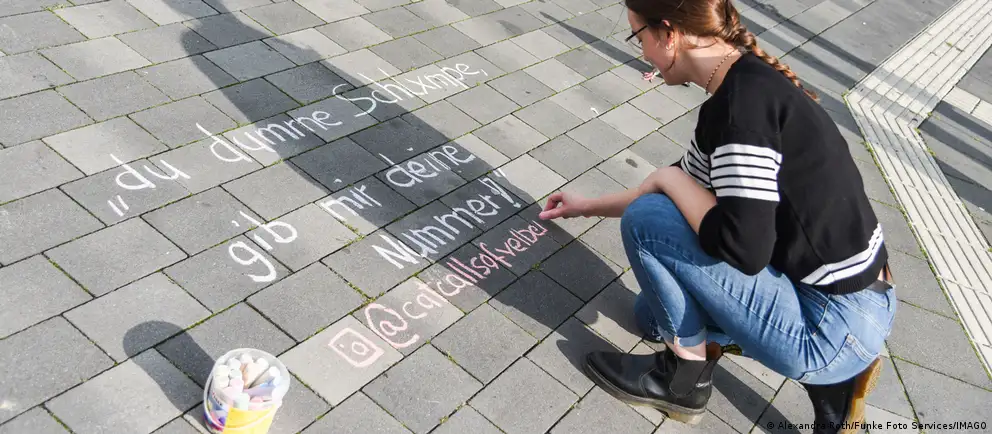 „du dumme Schlxmpe,
gib mir deine
Nummer!“
@catcallsofvelbert
© Alexandra Roth/Funke Foto Services/IMAGO